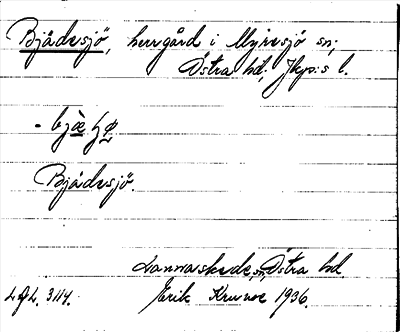 Bjädesjö, herrgård i Myresjö sn;
Östra hd; Jkps l.
Bjädesjö.
Lannaskede sn, Östra hd.
Erik 1936.